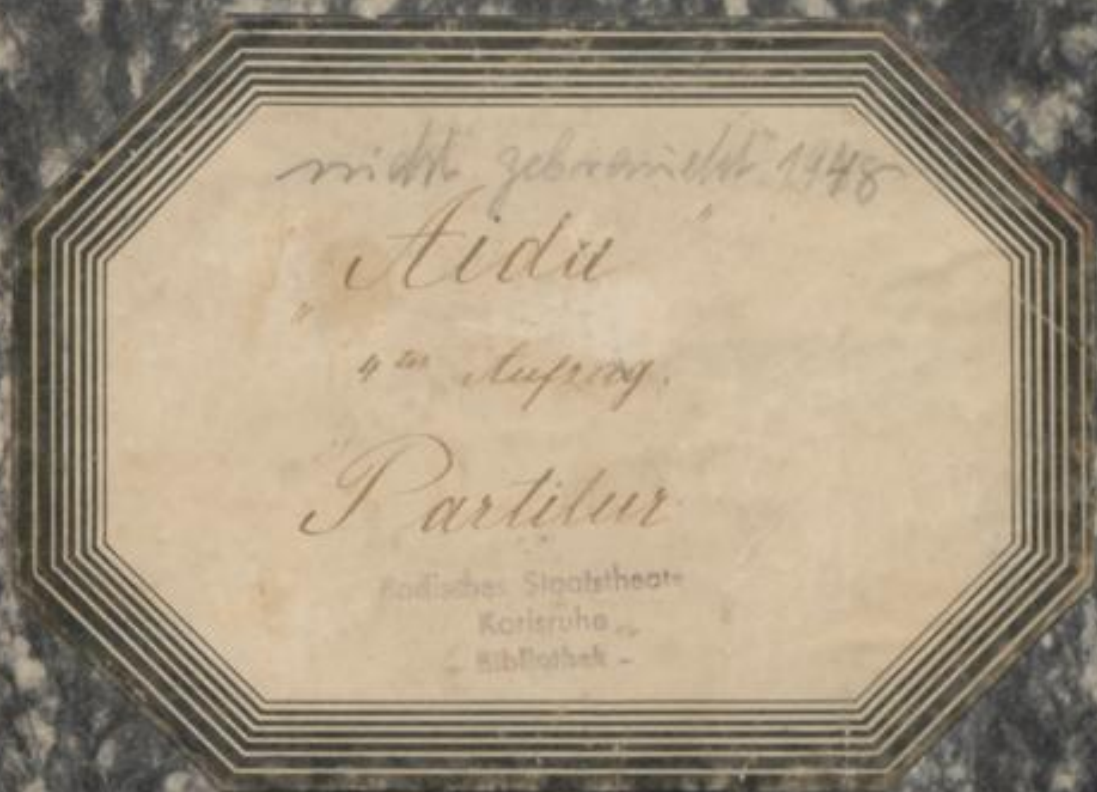 nicht gebraucht 1948
„Aida"
4ter Aufzug.
Partitur
Badisches Staatstheate
Karlsruhe
- Bibliothek -